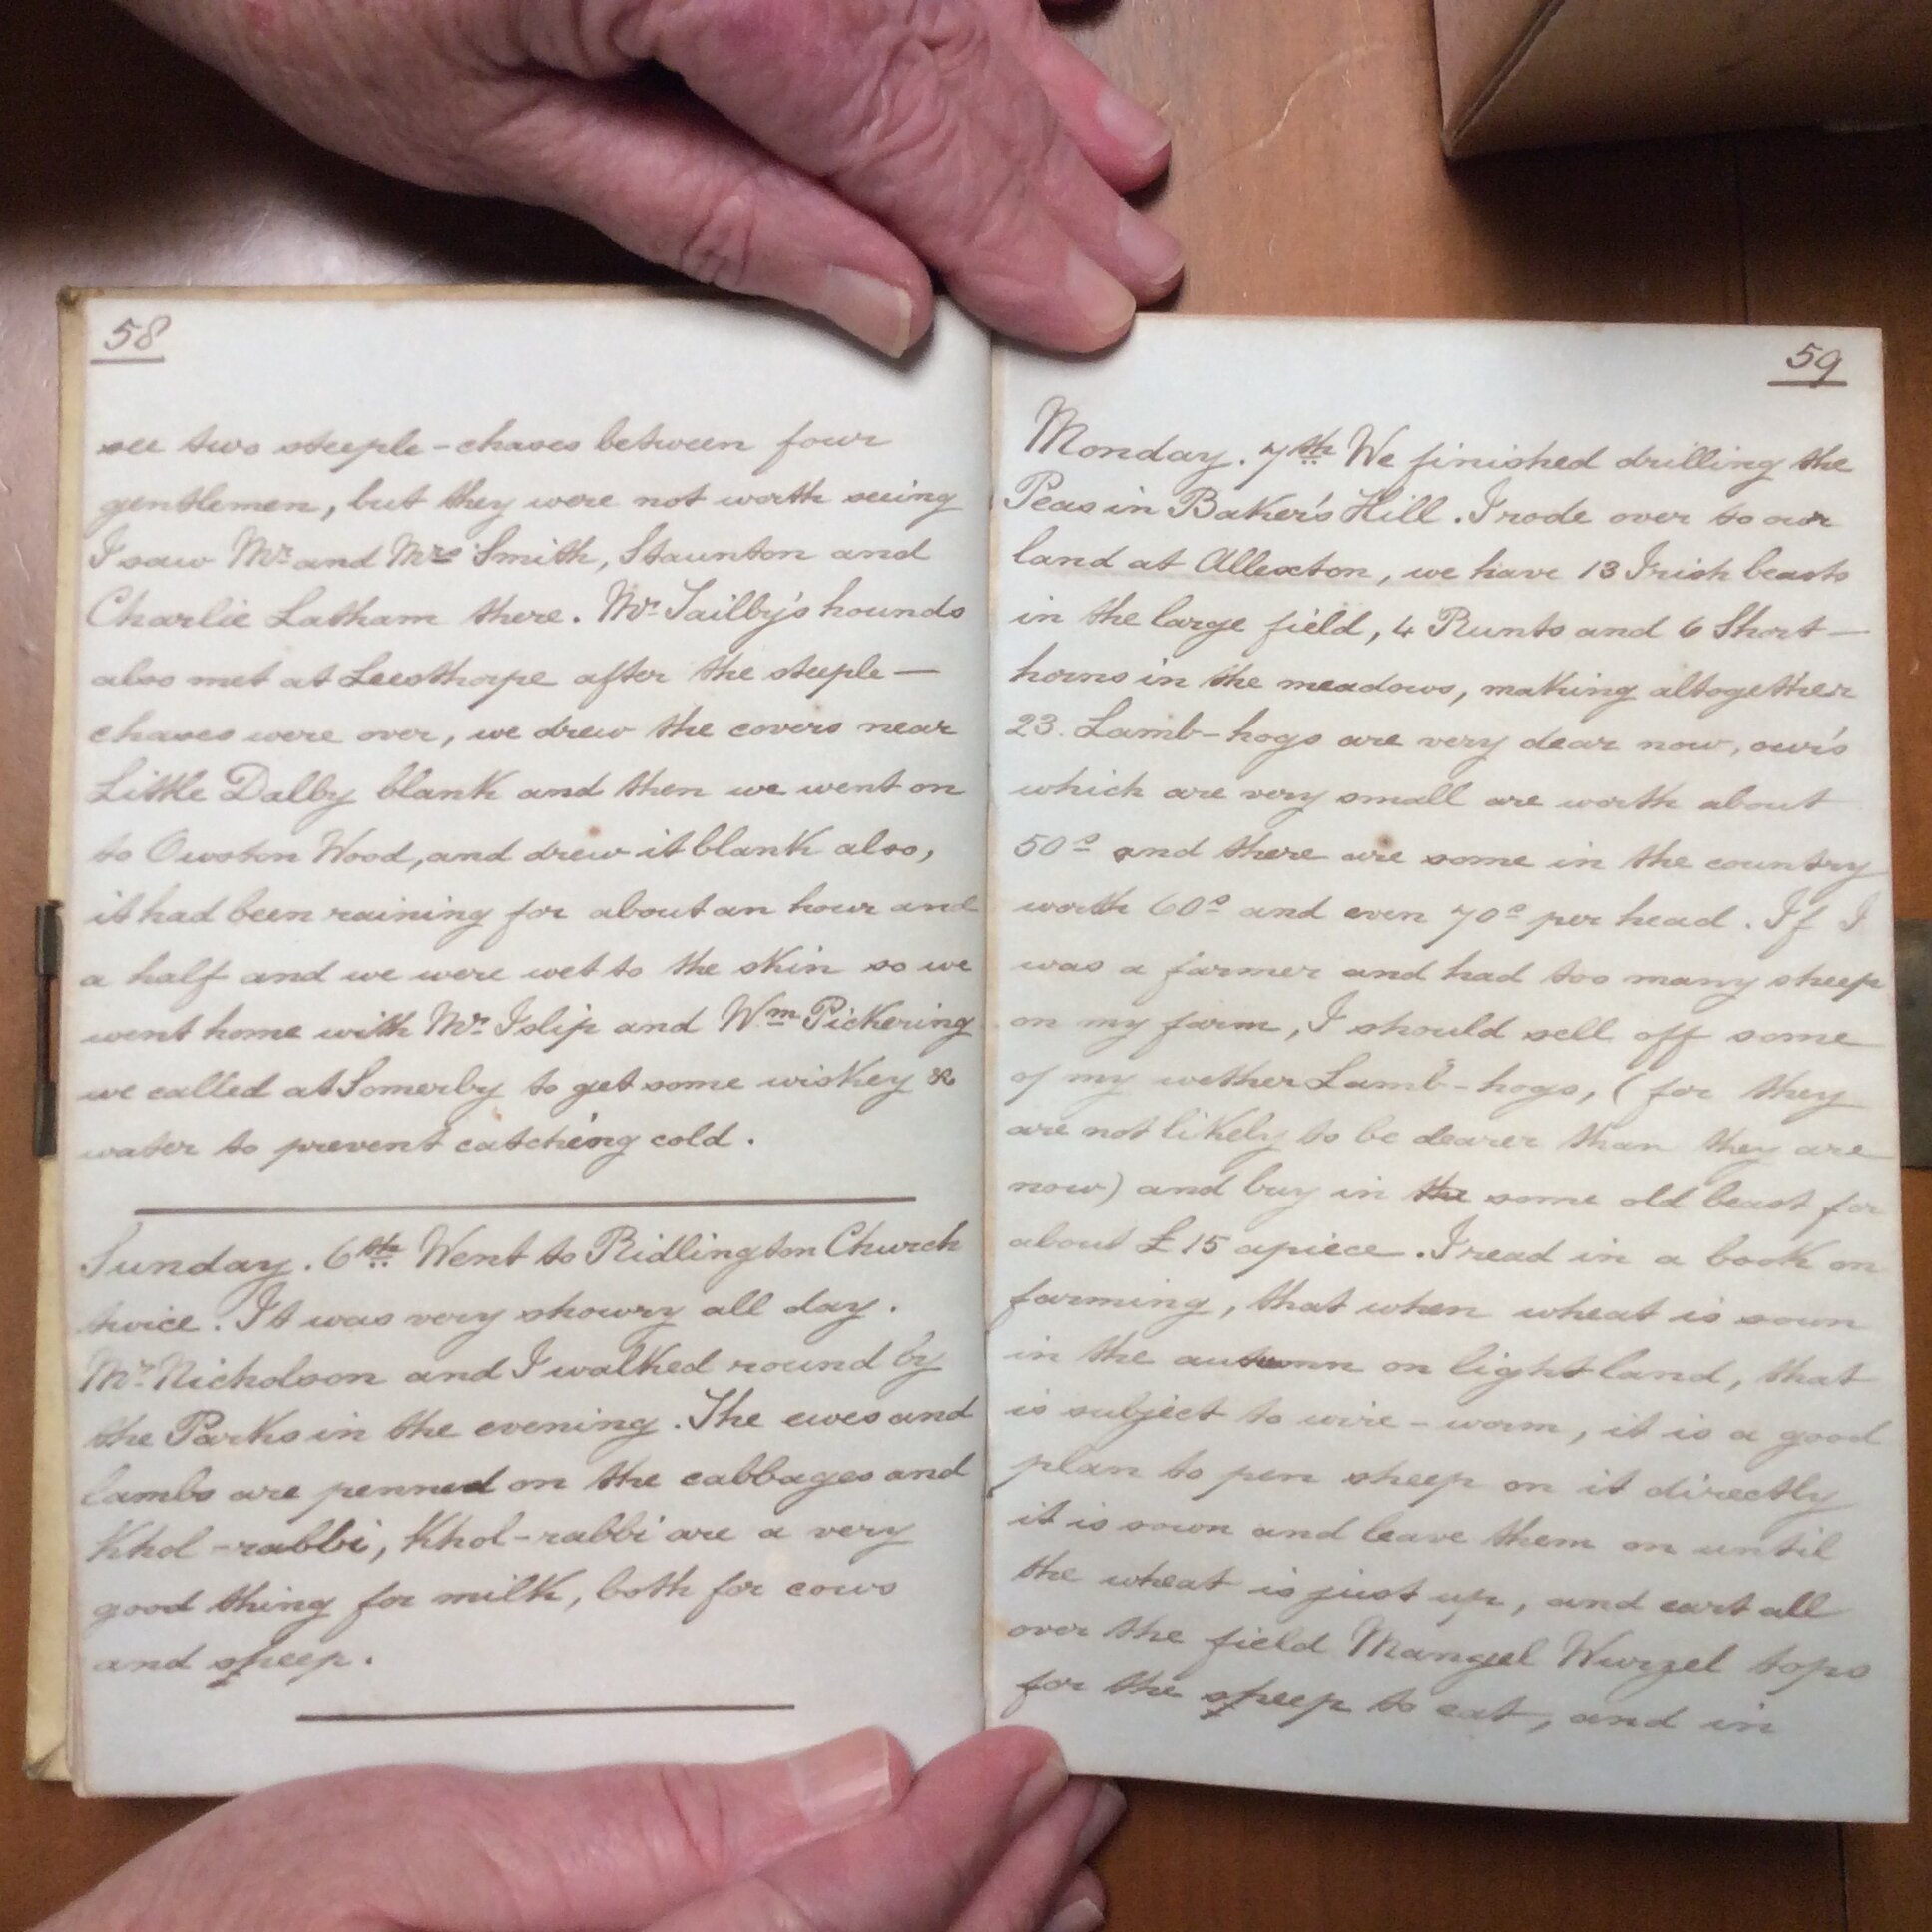 58
see two steeple-chases between four
gentlemen, but they were not worth seeing
I saw Mr. and Mrs Smith, Staunton and
Charlie Latham there. Mr. Tailby's hounds
also met at Leesthorpe after the steeple-
chases were over, we drew the covers near
Little Dalby blank and then we went on
to Owston Wood, and drew it blank also,
it had been raining for about an hour and
a half and we were wet to the skin so we
went home with Mr. Islip and Wm Pickering
we called at Somerby to get some wiskey &
water to prevent catching cold.
Sunday. 6th Went to Ridlington Church
twice. It was very showry all day.
Mr. Nicholson and I walked round by
the Parks in the evening. The ewes and
lambs are penned on the cabbages and
Khol-rabbi, Khol-rabbi are a very
good thing for milk, both for cows
and sheep.
59
Monday. 7th We finished drilling the
Peas in Baker's Hill. I rode over to our
land at Allexton, we have 13 Irish beasts
in the large field, 4 Runts and 6 Short-
horns in the meadows, making altogether
23. Lamb-hogs are very dear now, our's
which are very small are worth about
50s and there are some in the country
worth 60s and even 70s per head. If I
was a farmer and had too many sheep
on my farm, I should sell off some
of my wether Lamb-hogs, (for they
are not likely to be dearer than they are
now) and buy in the some old beast for
about £15 apiece. I read in a book on
farming, that when wheat is sown
in the autumn on light land, that
is subject to wire-worm, it is a good
plan to pen sheep on it directly
it is sown and leave them on until
the wheat is just up, and cart all
over the field Mangel Wurzel tops
for the sheep to eat, and in